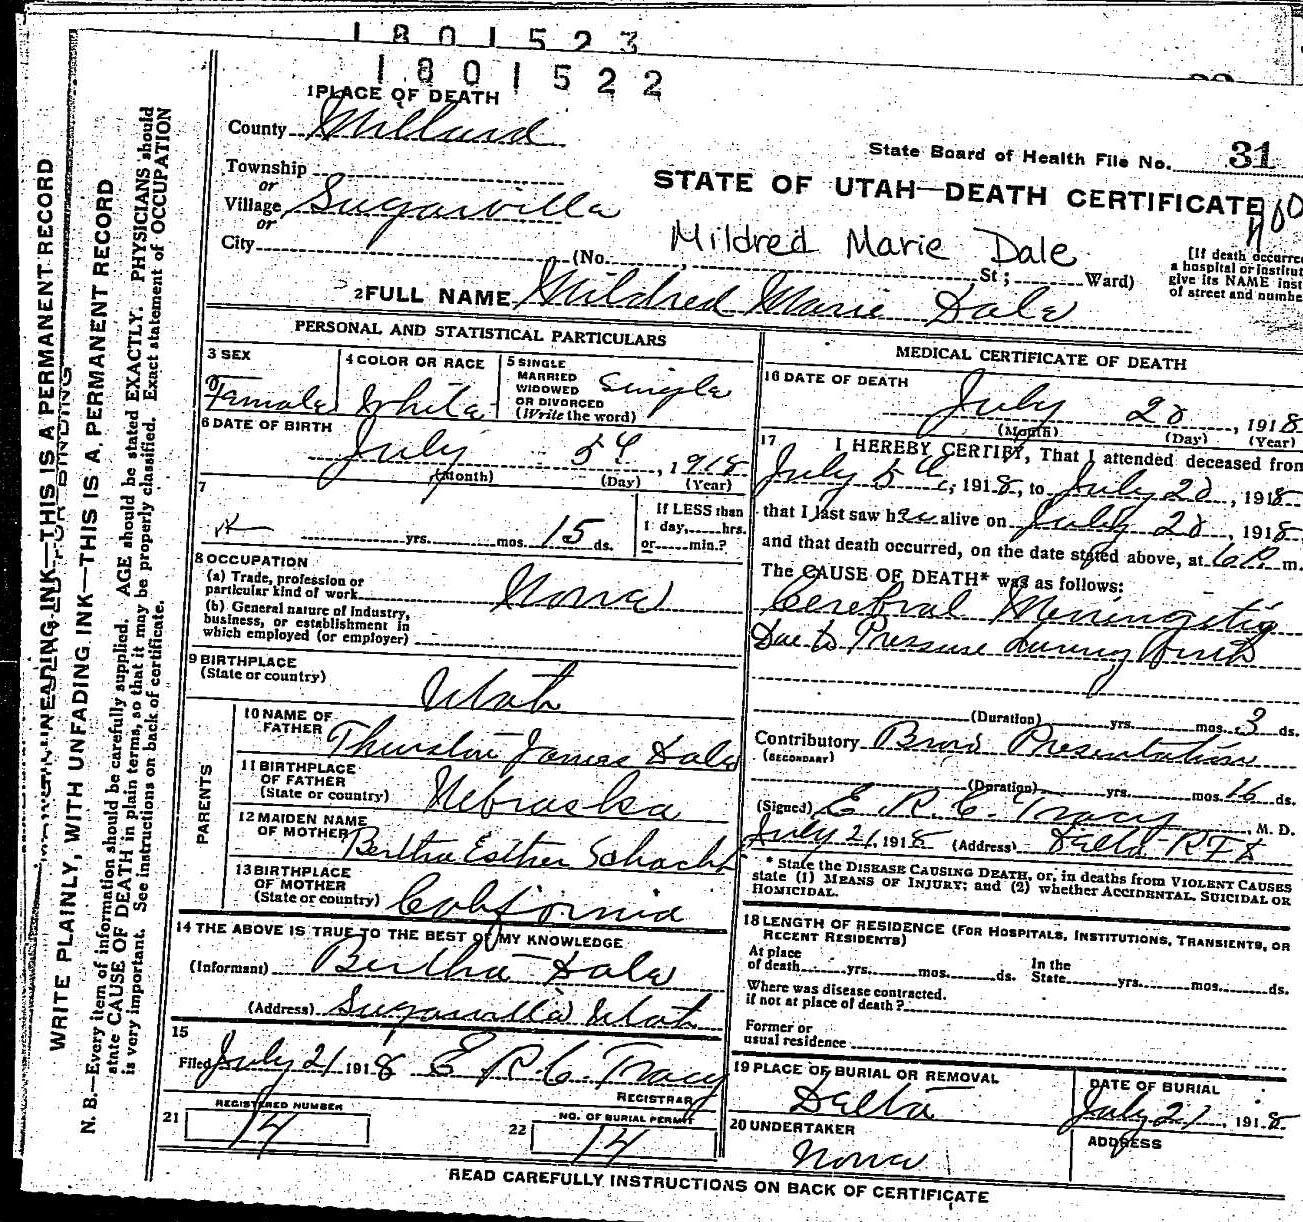 1801523
1801522
1 PLACE OF DEATH
County Millard
State Board of Health File No. 31
Township
or
Village Sugarville
or
City
STATE OF UTAH—DEATH CERTIFICATE
Mildred Marie Dale
(No. St; Ward)
[If death occurred
a hospital or institut
give its NAME inst
of street and numbe
2 FULL NAME Mildred Marie Dale
PERSONAL AND STATISTICAL PARTICULARS
3 SEX
Female
4 COLOR OR RACE
White
5 SINGLE
MARRIED
WIDOWED
OR DIVORCED
(Write the word)
Single
6 DATE OF BIRTH
July 5th, 1918
(Month) (Day) (Year)
7
yrs. mos. 15 ds.
If LESS than
1 day, hrs.
or min.?
8 OCCUPATION
(a) Trade, profession or
particular kind of work None
(b) General nature of industry,
business, or establishment in
which employed (or employer)
9 BIRTHPLACE
(State or country)
Utah
PARENTS
10 NAME OF
FATHER Thurston James Dale
11 BIRTHPLACE
OF FATHER
(State or country) Nebraska
12 MAIDEN NAME
OF MOTHER Bertha Esther Schacht
13 BIRTHPLACE
OF MOTHER
(State or country) California
14 THE ABOVE IS TRUE TO THE BEST OF MY KNOWLEDGE
(Informant) Bertha Dale
(Address) Sugarville Utah
15
Filed July 21 1918 E R.C. Tracy
REGISTRAR
21 REGISTERED NUMBER
14
22 NO. OF BURIAL PERMIT
14
MEDICAL CERTIFICATE OF DEATH
16 DATE OF DEATH
July 20, 1918
(Month) (Day) (Year)
17 I HEREBY CERTIFY, That I attended deceased from
July 5th, 1918, to July 20, 1918
that I last saw her alive on July 20, 1918
and that death occurred, on the date stated above, at 6 P. m.
The CAUSE OF DEATH* was as follows:
Cerebral Meningitis
Due to Pressure during birth
(Duration) yrs. mos. 3 ds.
Contributory Brow Presentation
(SECONDARY)
(Duration) yrs. mos. 16 ds.
(Signed) E. R. C. Tracy, M. D.
July 21, 1918 (Address) Delta
* State the DISEASE CAUSING DEATH, or, in deaths from VIOLENT CAUSES
state (1) MEANS OF INJURY; and (2) whether ACCIDENTAL, SUICIDAL OR
HOMICIDAL.
18 LENGTH OF RESIDENCE (FOR HOSPITALS, INSTITUTIONS, TRANSIENTS, OR
RECENT RESIDENTS)
At place
of death yrs. mos. ds.
In the
State yrs. mos. ds.
Where was disease contracted.
if not at place of death?
Former or
usual residence
19 PLACE OF BURIAL OR REMOVAL
Delta
DATE OF BURIAL
July 21, 1918
20 UNDERTAKER
None
ADDRESS
READ CAREFULLY INSTRUCTIONS ON BACK OF CERTIFICATE
WRITE PLAINLY, WITH UNFADING INK—THIS IS A PERMANENT RECORD
N. B.—Every item of information should be carefully supplied. AGE should be stated EXACTLY. PHYSICIANS should
state CAUSE OF DEATH in plain terms, so that it may be properly classified. Exact statement of OCCUPATION
is very important. See instructions on back of certificate.